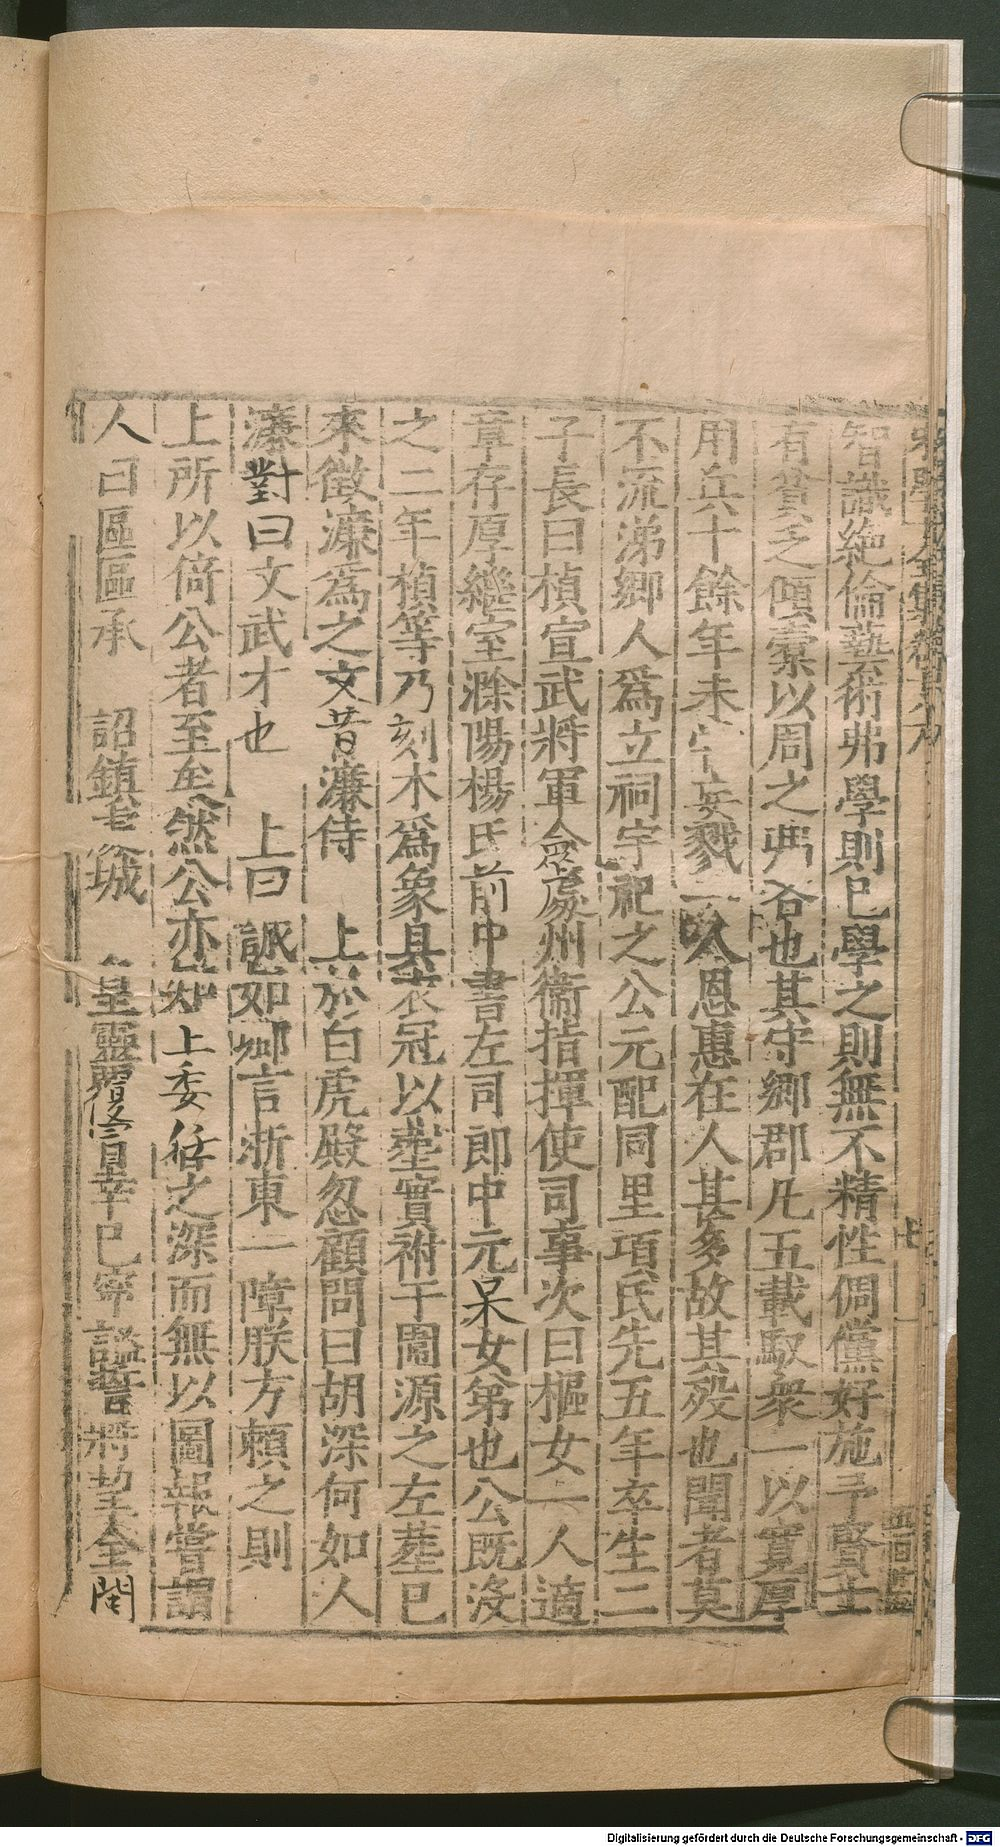 智識絶倫藝術弗學則已學之則無不精性倜儻好施予賢士
有貧乏傾橐以周之弗吝也其守鄉郡凡五載馭衆一以寬厚
用兵十餘年未 妄戮一人恩惠在人甚多故其殁也聞者莫
不流涕鄉人爲立祠宇祀之公元配同里項氏先五年卒生二
子長曰楨宣武將軍僉處州衞指揮使司事次曰樞女一人適
章存厚繼室滁陽楊氏前中書左司郎中元杲女弟也公既没
之二年楨等乃刻木爲象具衣冠以塟實祔于闔源之左塟已
來徵濂爲之文昔濂侍 上於白虎殿忽顧問曰胡深何如人
濂對曰文武才也 上曰 誠如卿言浙東一障朕方賴之則
上所以倚公者至矣然公亦知 上委任之深而無以圖報嘗謂
人曰區區承 詔鎮 城 皇靈覆 幸已寧謐誓將 金閩
五百廿
Digitalisierung gefördert durch die Deutsche Forschungsgemeinschaft - DFG